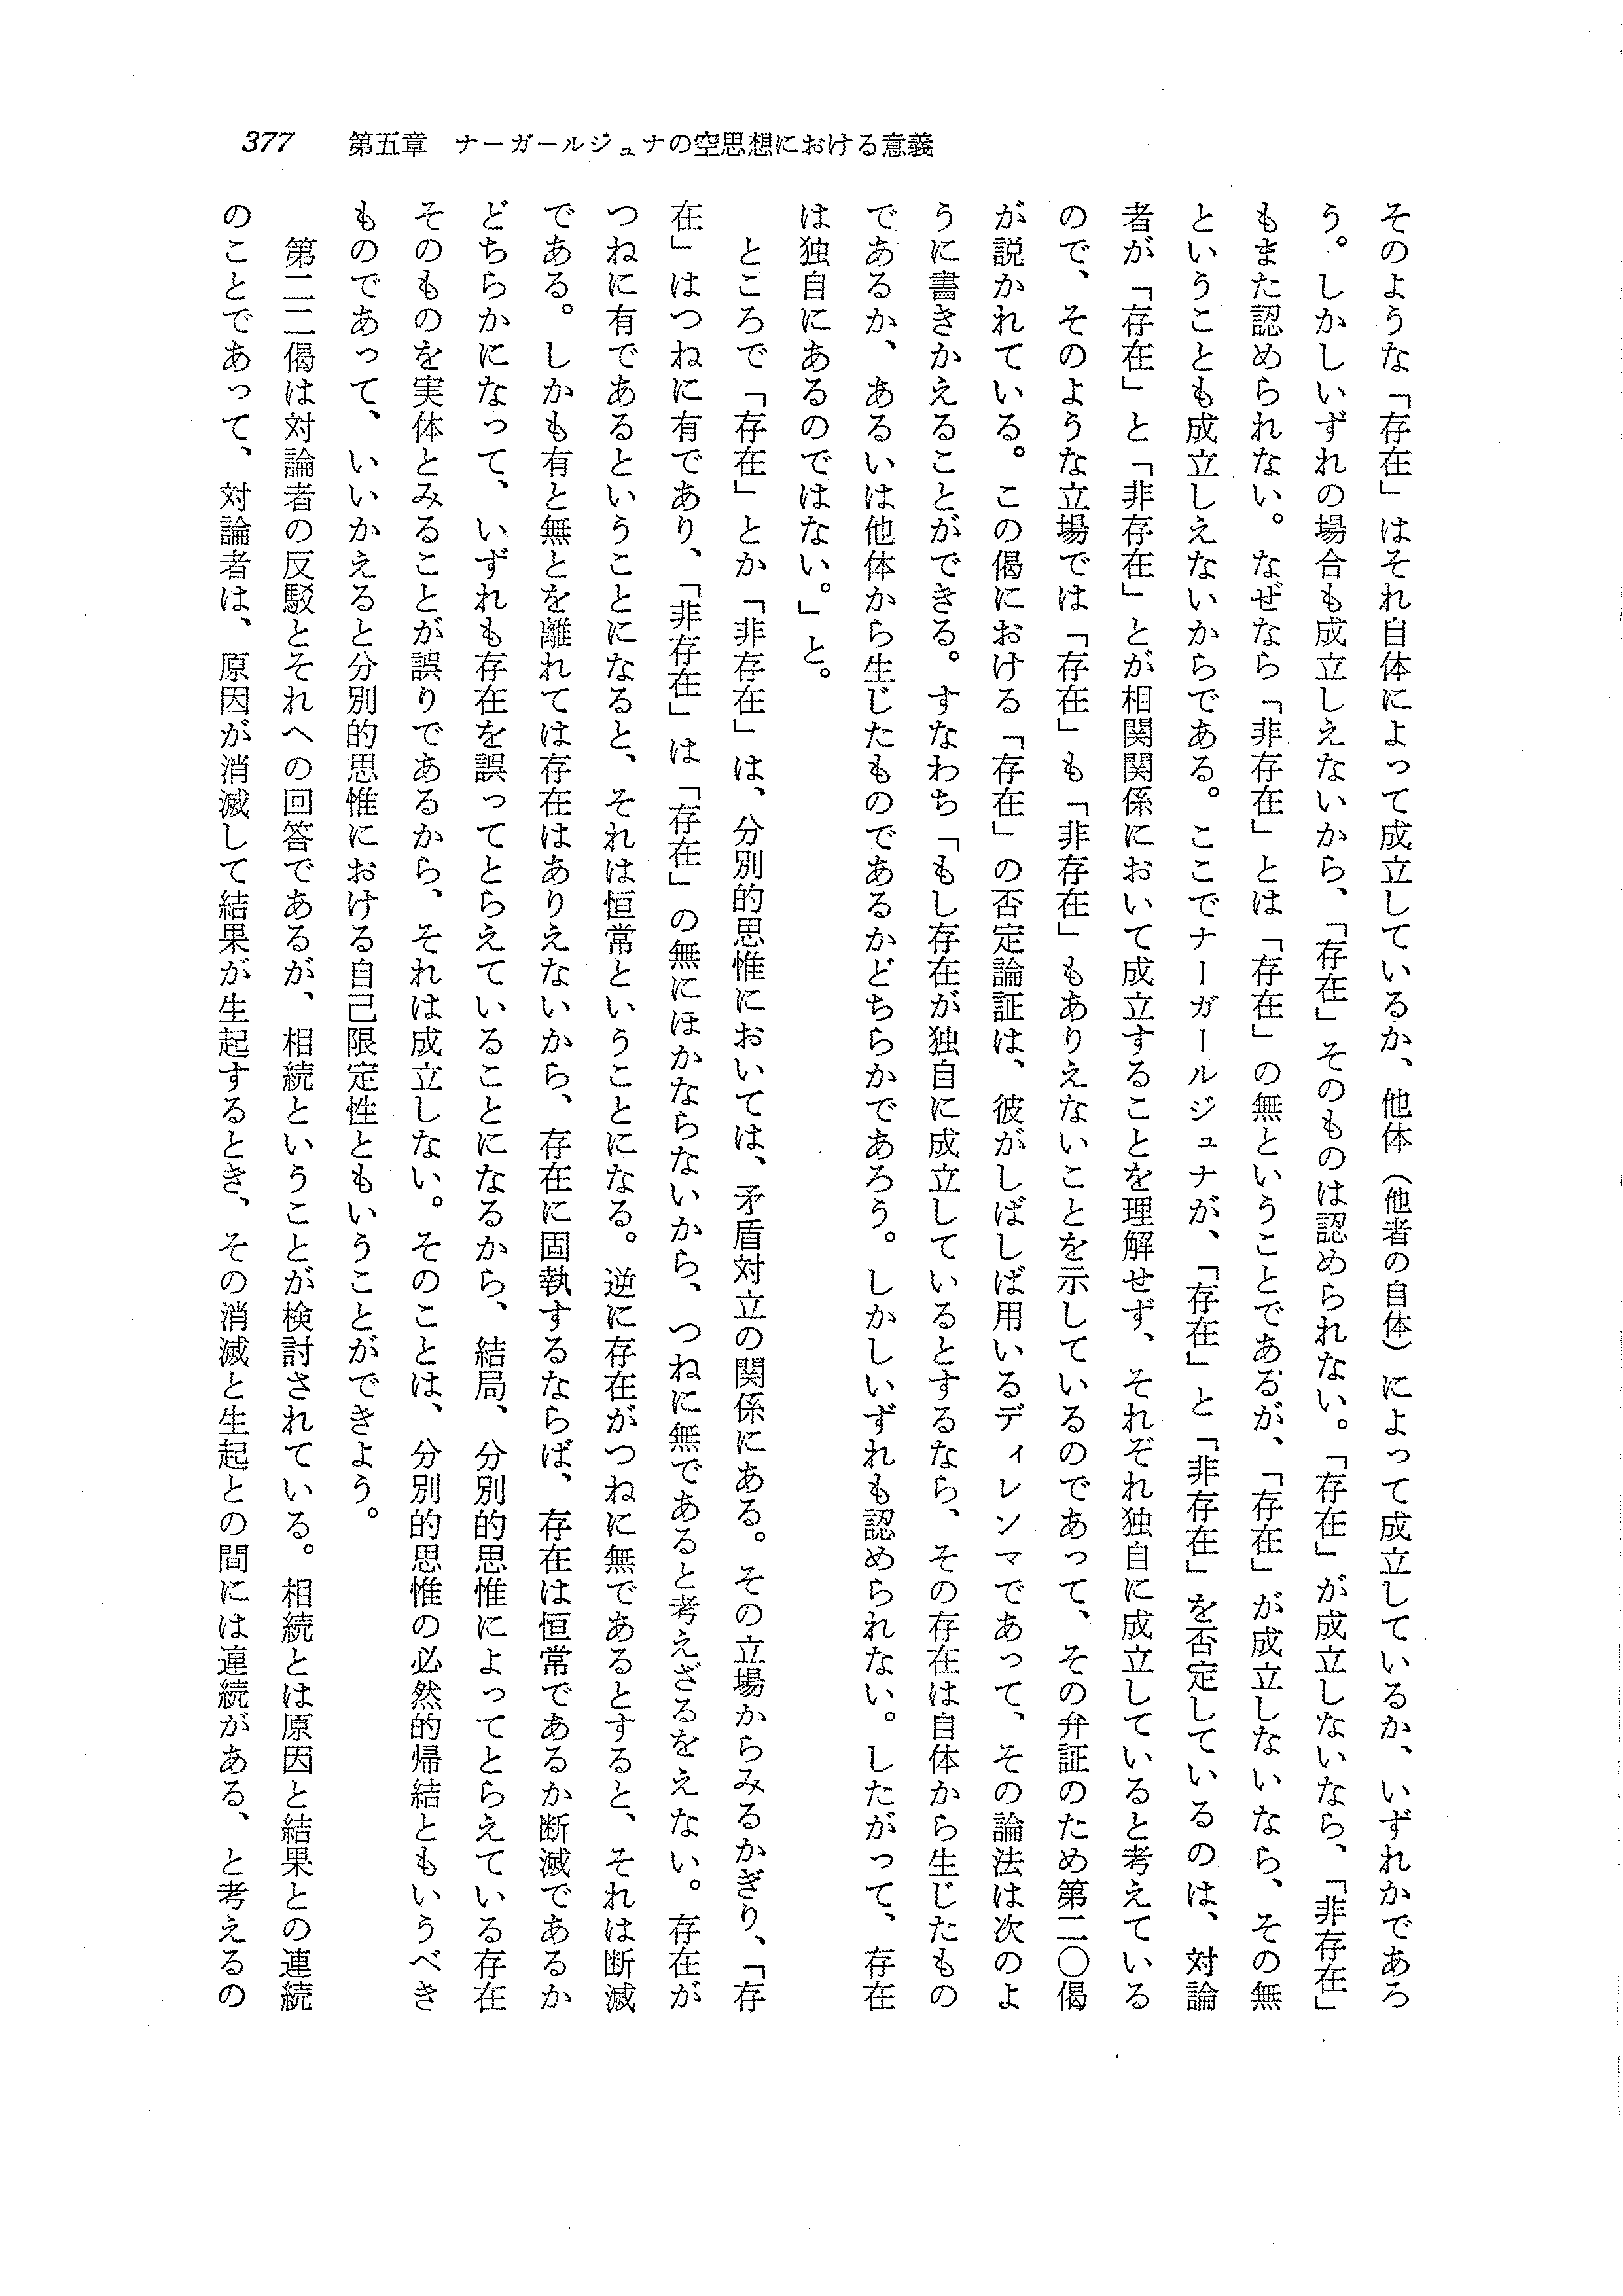 377　第五章　ナーガールジュナの空思想における意義
そのような「存在」はそれ自体によって成立しているか、他体（他者の自体）によって成立しているか、いずれかであろ
う。しかしいずれの場合も成立しえないから、「存在」そのものは認められない。「存在」が成立しないなら、「非存在」
もまた認められない。なぜなら「非存在」とは「存在」の無ということであるが、「存在」が成立しないなら、その無
ということも成立しえないからである。ここでナーガールジュナが、「存在」と「非存在」を否定しているのは、対論
者が「存在」と「非存在」とが相関関係において成立することを理解せず、それぞれ独自に成立していると考えている
ので、そのような立場では「存在」も「非存在」もありえないことを示しているのであって、その弁証のため第二〇偈
が説かれている。この偈における「存在」の否定論証は、彼がしばしば用いるディレンマであって、その論法は次のよ
うに書きかえることができる。すなわち「もし存在が独自に成立しているとするなら、その存在は自体から生じたもの
であるか、あるいは他体から生じたものであるかどちらかであろう。しかしいずれも認められない。したがって、存在
は独自にあるのではない。」と。
ところで「存在」とか「非存在」は、分別的思惟においては、矛盾対立の関係にある。その立場からみるかぎり、「存
在」はつねに有であり、「非存在」は「存在」の無にほかならないから、つねに無であると考えざるをえない。存在が
つねに有であるということになると、それは恒常ということになる。逆に存在がつねに無であるとすると、それは断滅
である。しかも有と無とを離れては存在はありえないから、存在に固執するならば、存在は恒常であるか断滅であるか
どちらかになって、いずれも存在を誤ってとらえていることになるから、結局、分別的思惟によってとらえている存在
そのものを実体とみることが誤りであるから、それは成立しない。そのことは、分別的思惟の必然的帰結ともいうべき
ものであって、いいかえると分別的思惟における自己限定性ともいうことができよう。
第二二偈は対論者の反駁とそれへの回答であるが、相続ということが検討されている。相続とは原因と結果との連続
のことであって、対論者は、原因が消滅して結果が生起するとき、その消滅と生起との間には連続がある、と考えるの